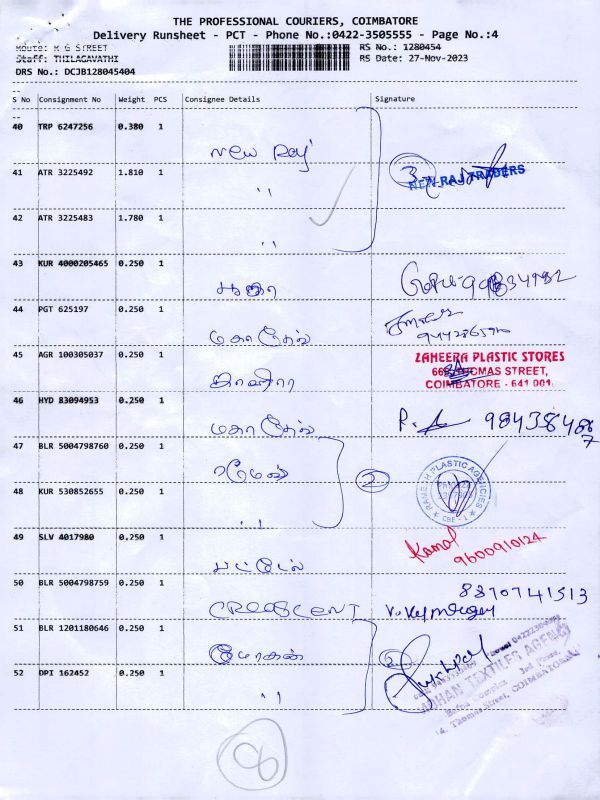 THE PROFESSIONAL COURIERS, COIMBATORE
Delivery Runsheet - PCT - Phone No.:0422-3505555 - Page No.:4
Route: M G STREET
Staff: THILAGAVATHI
DRS No.: DCJB128045404
RS No.: 1280454
RS Date: 27-Nov-2023
S No Consignment No Weight PCS Consignee Details Signature
40 TRP 6247256 0.380 1
New Raj
41 ATR 3225492 1.810 1
" NEW RAJ TRADERS
42 ATR 3225483 1.780 1
"
43 KUR 4000205465 0.250 1
44 PGT 625197 0.250 1
மகாதேவ்
45 AGR 100305037 0.250 1
ZAHEERA PLASTIC STORES
THOMAS STREET,
COIMBATORE - 641 001
46 HYD 83094953 0.250 1
மகாதேவ்
47 BLR 5004798760 0.250 1
ரமேஷ் 2
RAMESH PLASTIC AGENCIES
CBE - 1
48 KUR 530852655 0.250 1
"
49 SLV 4017980 0.250 1
பட்டேல் Kamal
9600910124
50 BLR 5004798759 0.250 1
CRESCENT
8870741513
51 BLR 1201180646 0.250 1
மோகன் 2
52 DPI 162452 0.250 1
"
TEXTILES AGENCY
Complex 3rd Floor,
Thomas Street, COIMBATORE